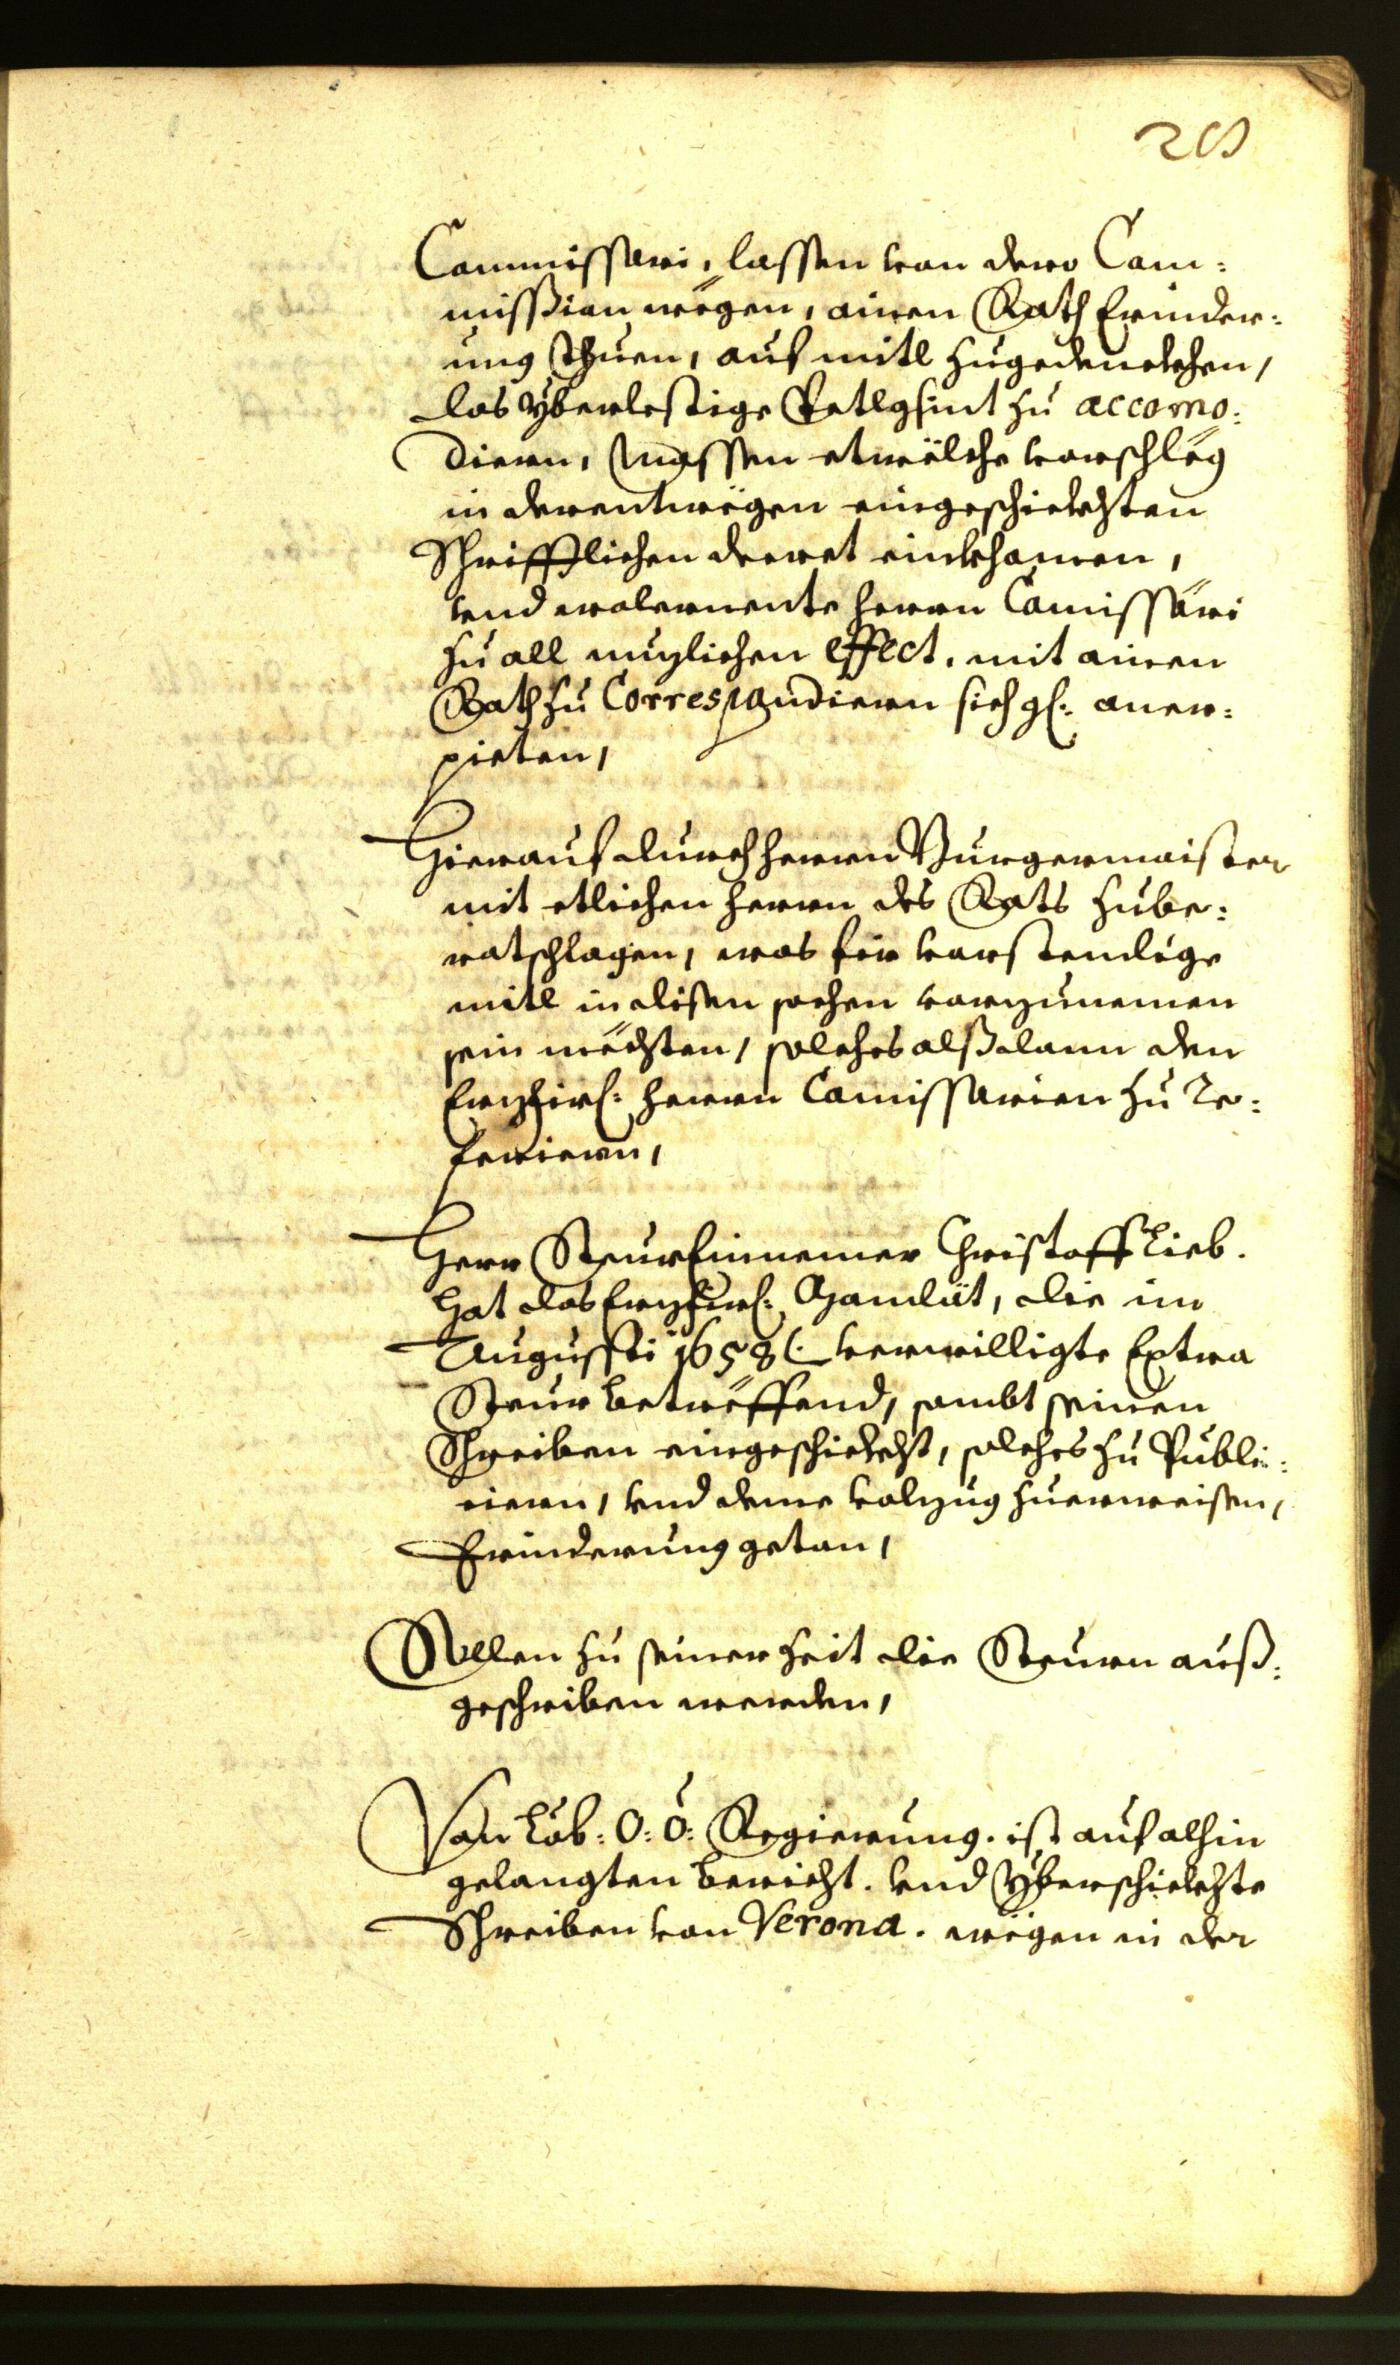 Commissari, lassen von dero Com=
mission wegen, ainen Rath Erinder=
ung Thuen, auf mitl zugedenckhen,
das yberlestige Petlgsint zu accomo=
diern, Massen etwelche vorschleg
in derentwegen eingeschickhten
Schrifftlichen decret einkhomen,
vnd wolernente herrn Comissäri
zu all nuzlichen effect. mit ainen
Rath zu Correspondiern sich gl: aner=
pieten,
Hierauf durch herrn Burgermaister
mit etlichen herrn des Rats zube=
ratschlagen, was für verstendige
mitl in disen sachen vorzunemen
sein mechten, solches alßdann den
Erzfirl: herrn Comissarien zu Re=
feriern,
Herr Steur Einnemer Christoff Lieb.
Hat das Erzfürl: Mandat, die im
Augusti 1658 verwilligte Extra
Steur betreffend, sambt seinen
Schreiben eingeschickht, solches zu Publi=
ciern, vnd deme volzug zuerweisen,
Erinderung getan,
Sollen zu seiner zeit die Steurn auß=
geschriben werden,
Von Löb: O: Ö: Regierung. ist auf alhin
gelangten bericht. vnd yberschickhte
Schreiben von Verona. wegen in der